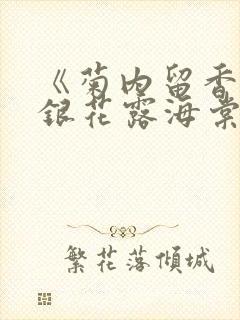 《菊内留香
银花露海棠
繁花落倾城